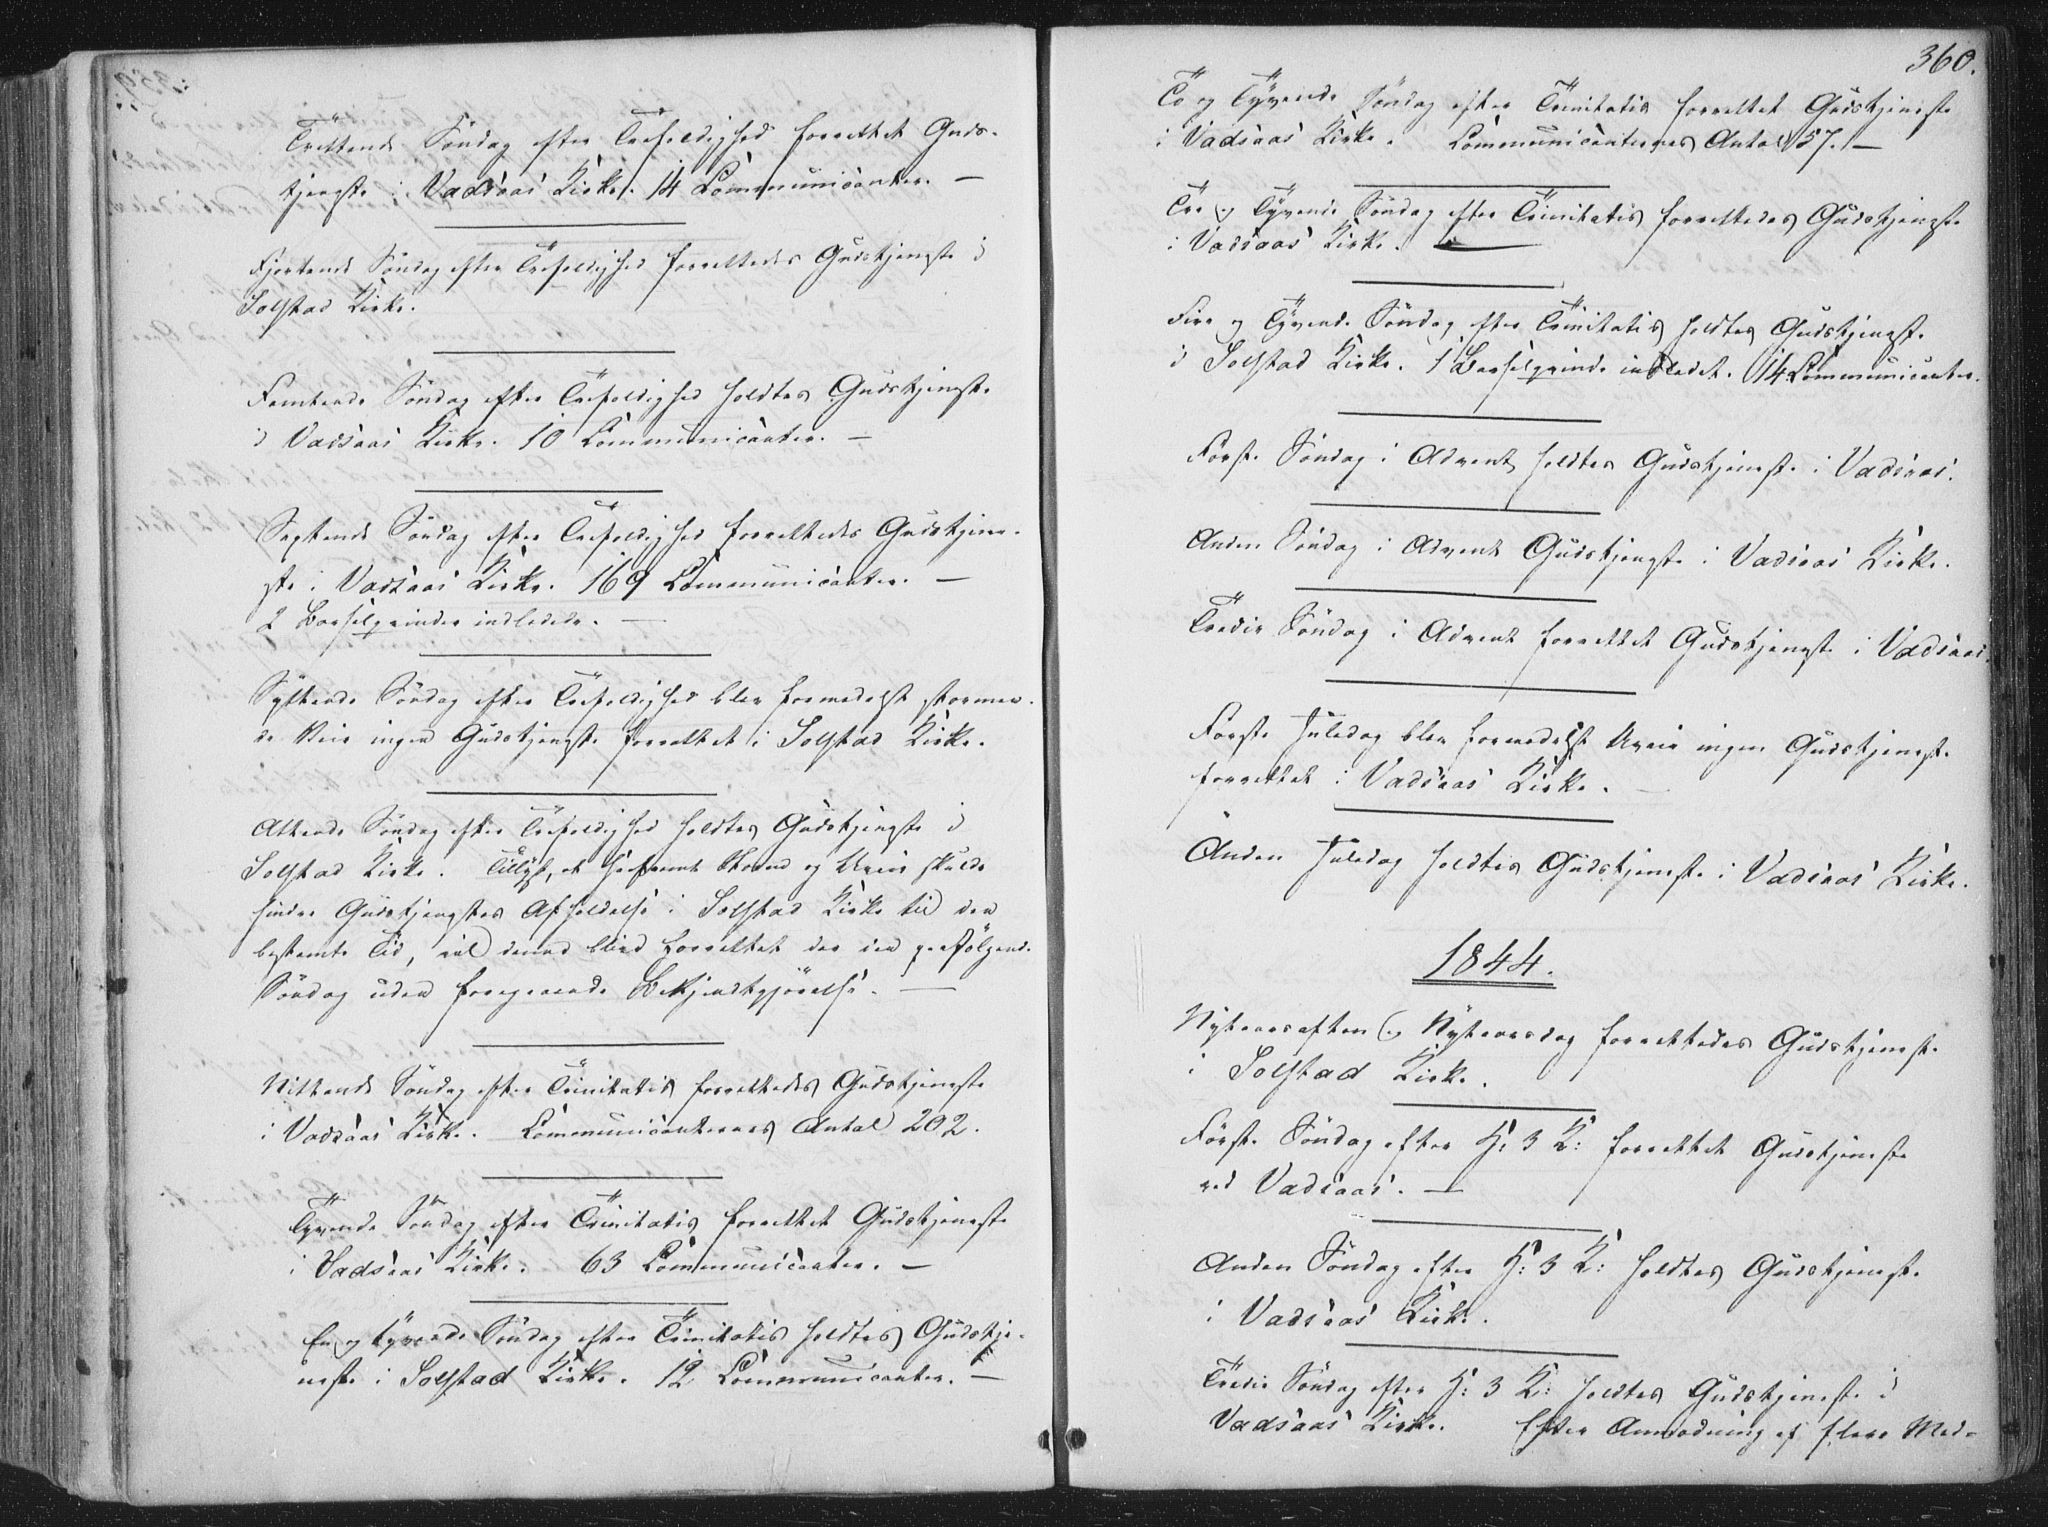 Trettende Söndag efter Trefoldighed forrettet Guds-
tjeneste i Vadsaas Kirke. 14 Communicanter. —
Fjortende Söndag efter Trefoldighed forrettedes Gudstjeneste i
Solstad Kirke.
Femtende Söndag efter Trefoldighed holdtes Gudstjeneste
i Vadsaas Kirke. 10 Communicanter. —
Sextende Söndag efter Trefoldighed forrettedes Gudstjene-
ste i Vadsaas Kirke. 169 Communicanter. —
2 Barselqvinder indledede. —
Syttende Söndag efter Trefoldighed blev formedelst stormen-
de Veir ingen Gudstjeneste forrettet i Solstad Kirke.
Attende Söndag efter Trefoldighed holdtes Gudstjeneste i
Solstad Kirke. Tillyst, at saafremt Storm og Uveir skulde
hindre Gudstjenestes Afholdelse i Solstad Kirke til den
bestemte Tid, vil denne blive forrettet der den paafölgende
Söndag uden foregaaende Bekjendtgjörelse. —
Nittende Söndag efter Trinitatis forrettedes Gudstjeneste
i Vadsaas Kirke. Communicanternes Antal 202.
Tyvende Söndag efter Trinitatis forrettet Gudstjeneste
i Vadsaas Kirke. 63 Communicanter. —
En og tyvende Söndag efter Trinitatis holdtes Gudstje-
neste i Solstad Kirke. 12 Communicanter. —
360.
To og Tyvende Söndag efter Trinitatis forrettet Gudstjeneste
i Vadsaas Kirke. Communicanternes Antal 57. —
Tre og Tyvende Söndag efter Trinitatis forrettedes Gudstjeneste
i Vadsaas Kirke. —
Fire og Tyvende Söndag efter Trinitatis holdtes Gudstjeneste
i Solstad Kirke. 1 Barselqvinde indledet. 14 Communicanter.
Förste Söndag i Advent holdtes Gudstjeneste i Vadsaas.
Anden Söndag i Advent Gudstjeneste i Vadsaas Kirke.
Tredie Söndag i Advent forrettet Gudstjeneste i Vadsaas.
Förste Juledag blev formedelst Uveir ingen Gudstjeneste
forrettet i Vadsaas Kirke. —
Anden Juledag holdtes Gudstjeneste i Vadsaas Kirke.
1844.
Nytaarsaften og Nytaarsdag forrettedes Gudstjeneste
i Solstad Kirke.
Förste Söndag efter H: 3 K: forrettet Gudstjeneste
ved Vadsaas. —
Anden Söndag efter H: 3 K: holdtes Gudstjeneste
i Vadsaas Kirke.
Tredie Söndag efter H: 3 K: holdtes Gudstjeneste i
Vadsaas Kirke. Efter Anmodning af flere Med-